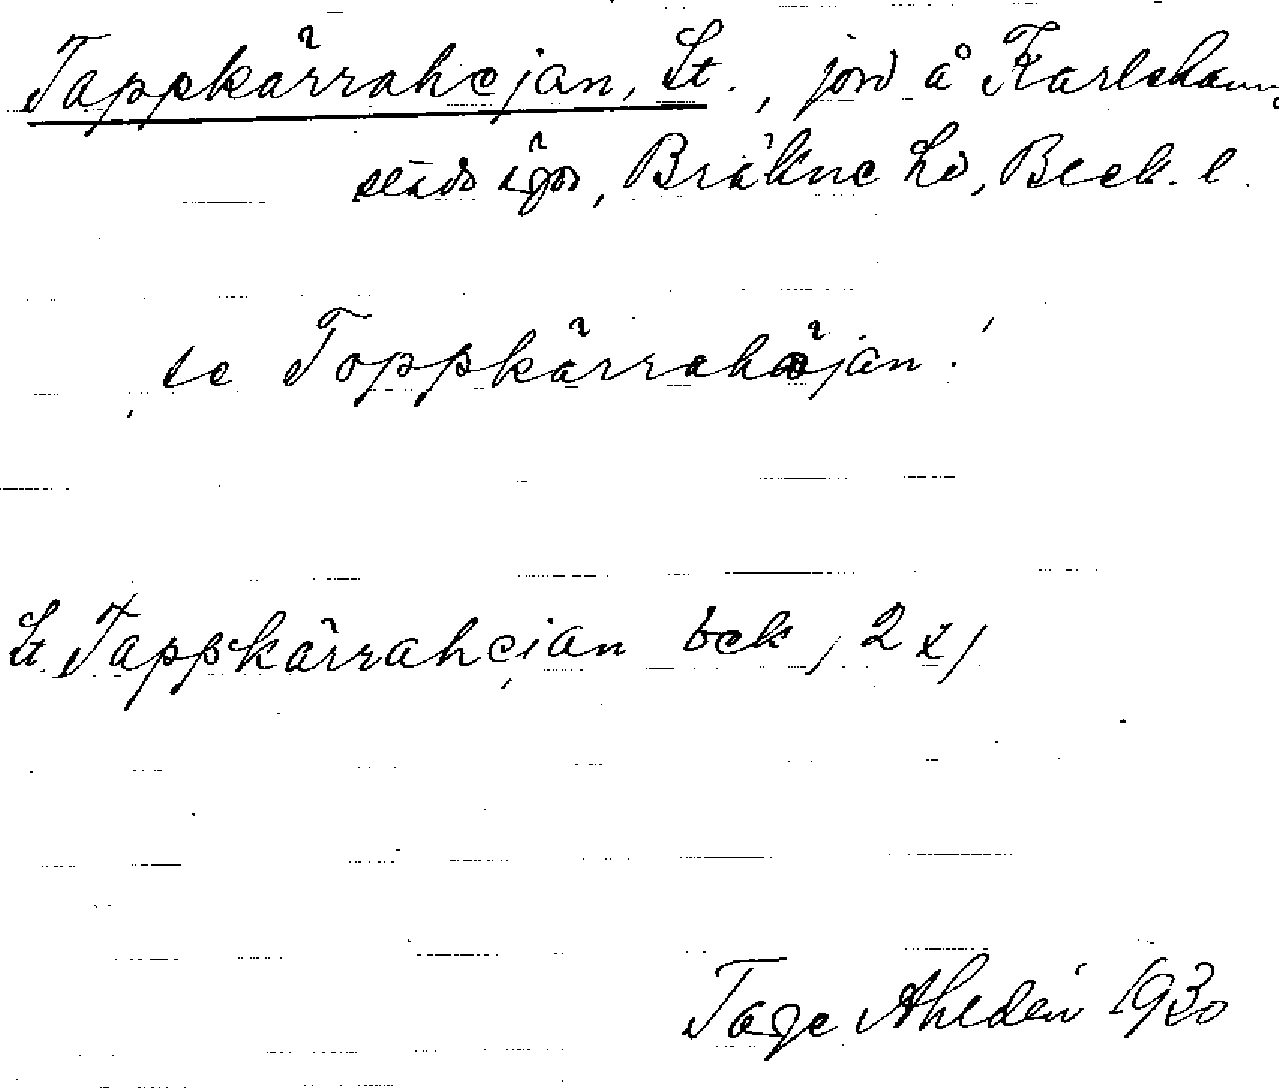 Tappkärrahejan, St., jord å Karlshamns
stads ägor, Bräkne hd, Blek. l.
se Toppkärrahöjan!
St. Tappkärrahejan
Tage Ahldén 1930